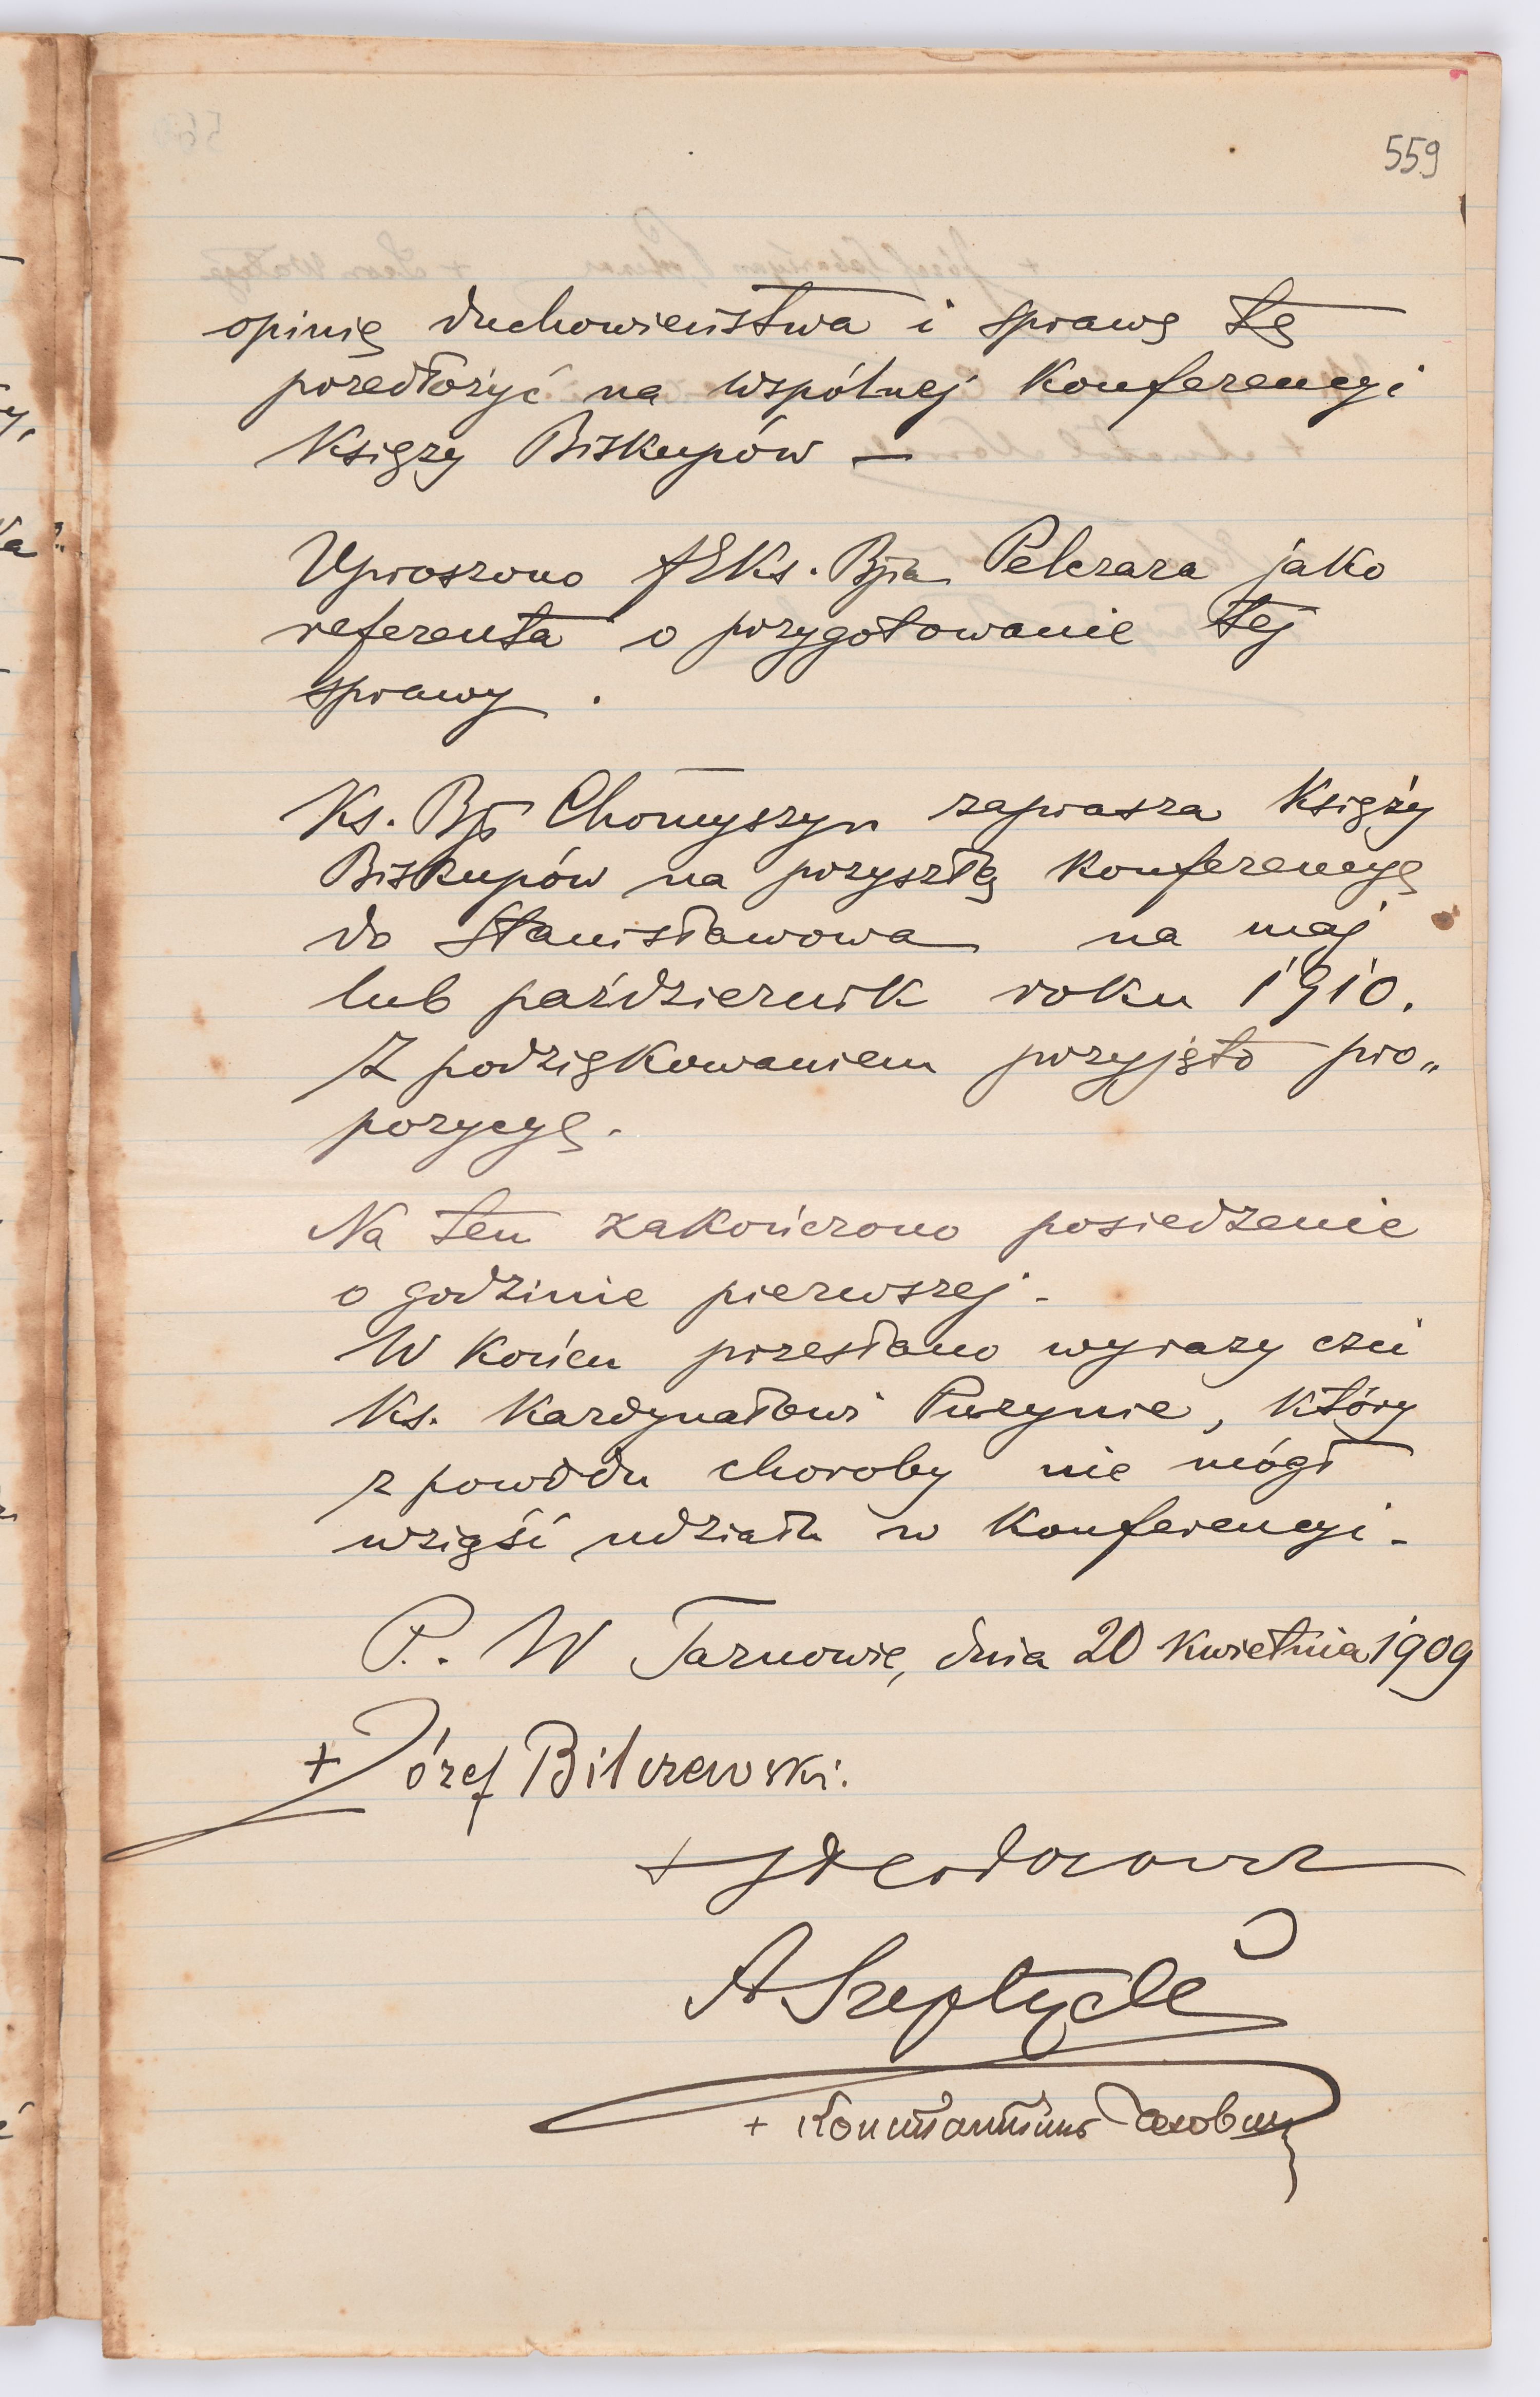 559
opinię duchowieństwa i sprawę tę
przedłożyć na wspólnej Konferencyi
Księży Biskupów —
Uproszono JEKs. Bpa Pelczara jako
referenta o przygotowanie tej
sprawy .
Ks. Bp Chomyszyn zaprasza Księży
Biskupów na przyszłą Konferencyę
do Stanisławowa na maj
lub październik roku 1910.
Z podziękowaniem przyjęto pro„
pozycyę.
Na tem zakończono posiedzenie
o godzinie pierwszej.
W końcu przesłano wyrazy czci
Ks. Kardynałowi Puzynie, który
z powodu choroby nie mógł
wziąść udziału w Konferencyi.
P. W Tarnowie, dnia 20 Kwietnia 1909
+ Józef Bilczewski.
+ JTeodorowicz
A Szeptycki
+ Константинъ Чехович